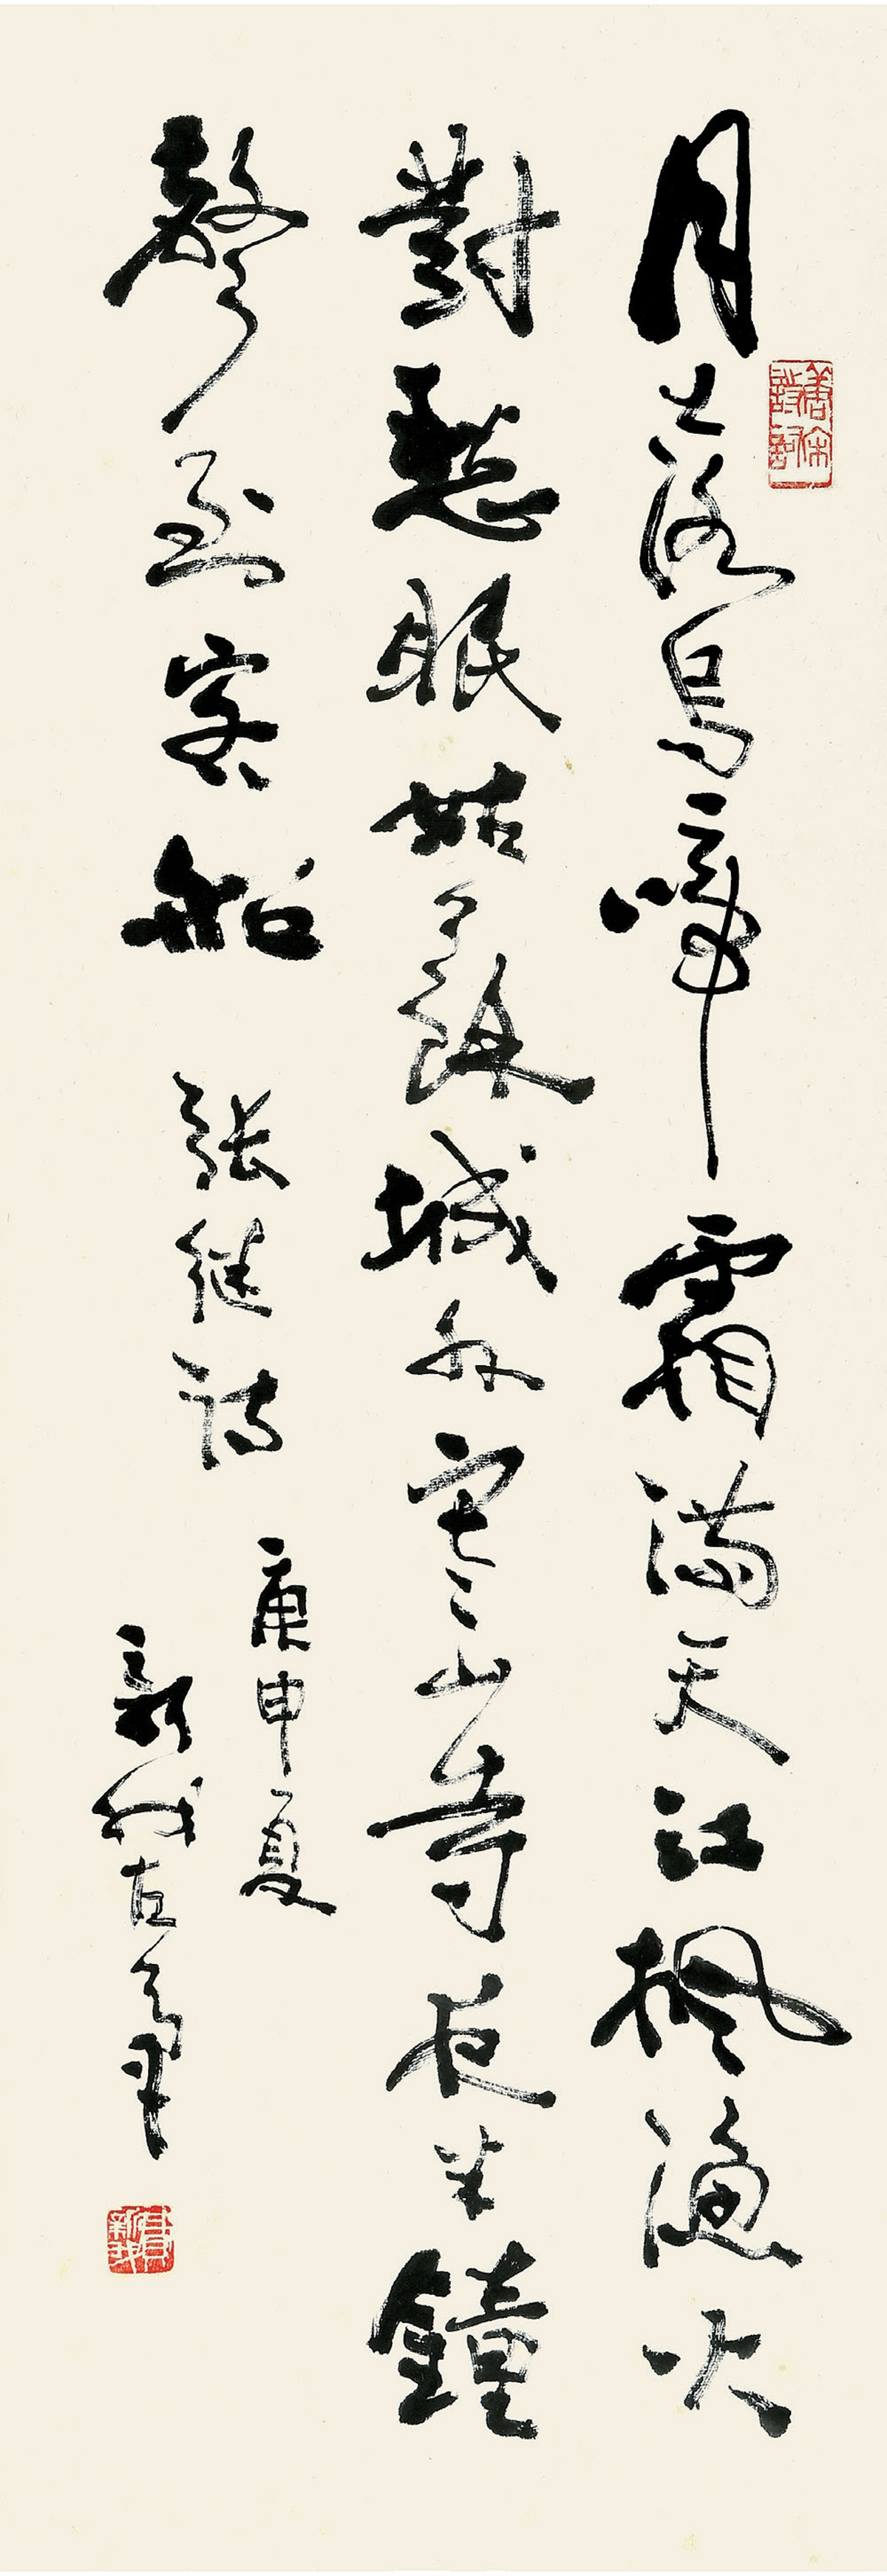 月落烏啼霜滿天江楓漁火
對愁眠姑蘇城外寒山寺夜半鐘
聲到客船 張継詩
庚申夏
新我左筆
唐宋詩詞